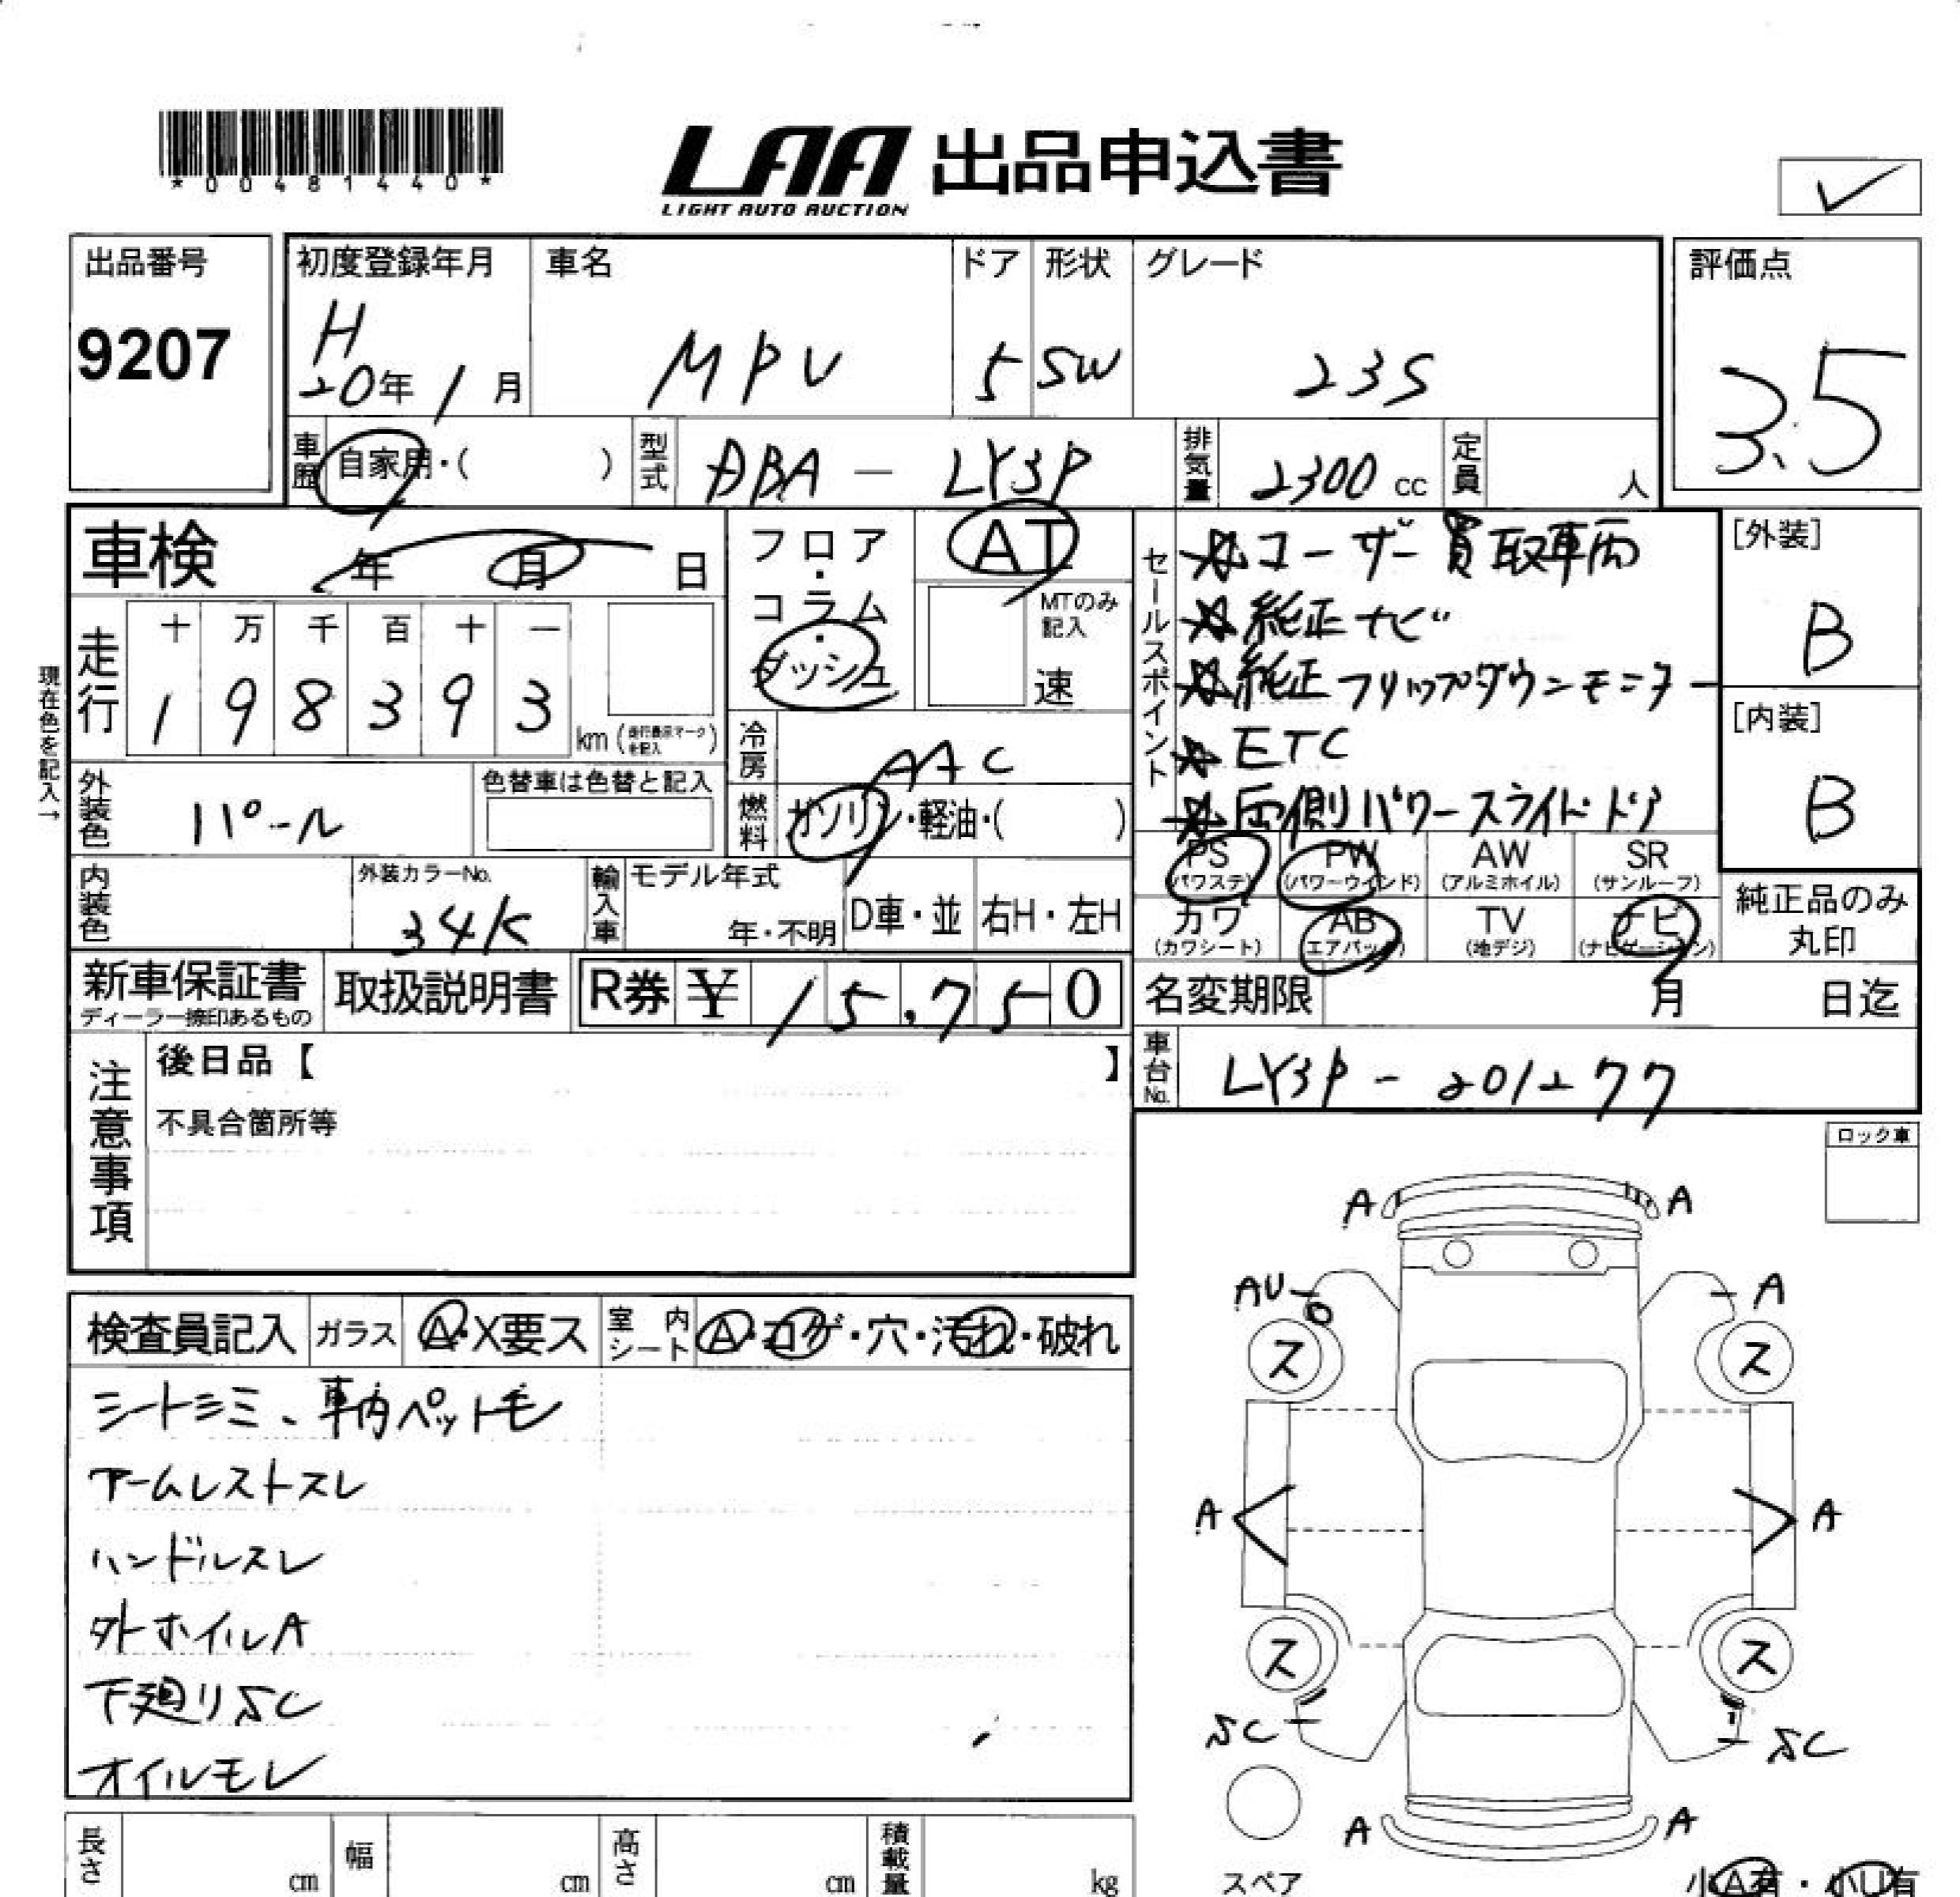 *00481440*
LAA 出品申込書
LIGHT AUTO AUCTION
出品番号
9207
初度登録年月
H
20年1月
車名
MPV
ドア
5
形状
SW
グレード
23S
評価点
3.5
車歴
自家用・( )
型式
DBA - LY3P
排気量
2300 cc
定員
人
車検
年 月 日
フロア・コラム・ダッシュ
AT
MTのみ記入
速
セールスポイント
☆ユーザー買取車両
☆純正ナビ
☆純正フリップダウンモニター
☆ETC
☆両側パワースライドドア
[外装]
B
[内装]
B
現在色を記入→
走行
十 万 千 百 十 一
1 9 8 3 9 3
km (走行表示マークを記入)
冷房
AAC
燃料
ガソリン・軽油・( )
外装色
パール
色替車は色替と記入
内装色
外装カラーNo.
34K
輸入車
モデル年式
年・不明
D車・並
右H・左H
PS
(パワステ)
PW
(パワーウインド)
AW
(アルミホイル)
SR
(サンルーフ)
カワ
(カワシート)
AB
(エアバック)
TV
(地デジ)
ナビ
(ナビゲーション)
純正品のみ
丸印
新車保証書
ディーラー捺印あるもの
取扱説明書
R券 ¥ 15,750
名変期限
月 日迄
車台No.
LY3P - 201277
注意事項
後日品【 】
不具合箇所等
ロック車
検査員記入
ガラス
A・X要ス
室内シート
A・コゲ・穴・汚れ・破れ
シートシミ、車内ペット毛
アームレストスレ
ハンドルスレ
外ホイルA
下廻りSC
オイルモレ
A A
AU A
ス ス
A A
ス ス
SC SC
A A
スペア
小A有・小U有
長さ
cm
幅
cm
高さ
cm
積載量
kg